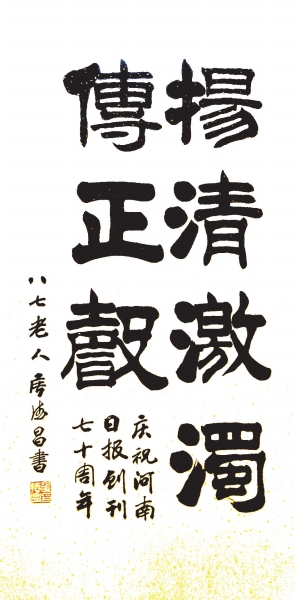 揚清激濁
傳正聲
庆祝河南
日报创刊
七十周年
八七老人海昌書